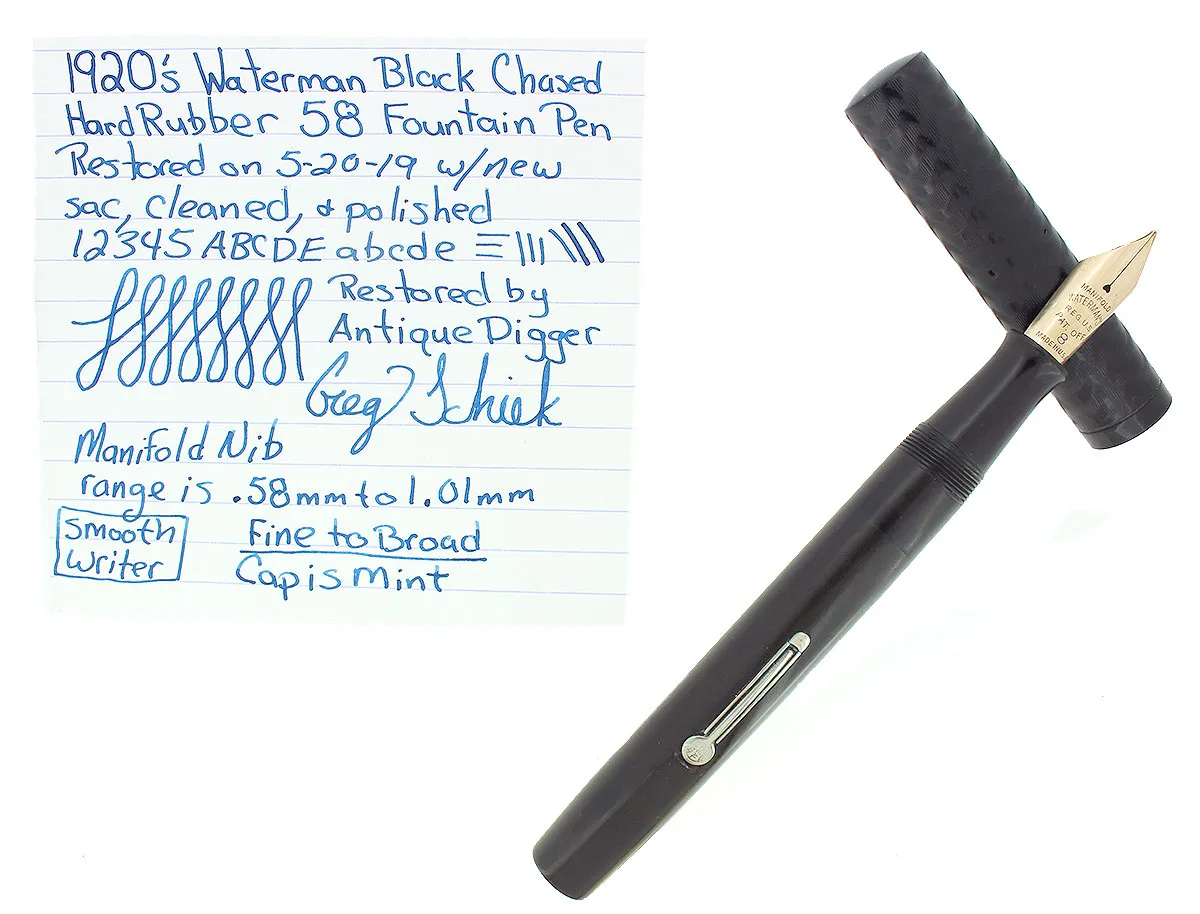 1920's Waterman Black Chased
Hard Rubber 58 Fountain Pen
Restored on 5-20-19 w/new
sac, cleaned, & polished
12345 ABCDE abcde
Restored by
Antique Digger
Greg Schiek
Manifold Nib
range is .58mm to 1.01mm
Smooth
Writer
Fine to Broad
Cap is Mint
MANIFOLD
WATERMAN'S
REG. U.S.
PAT. OFF.
8
MADE IN U.S.